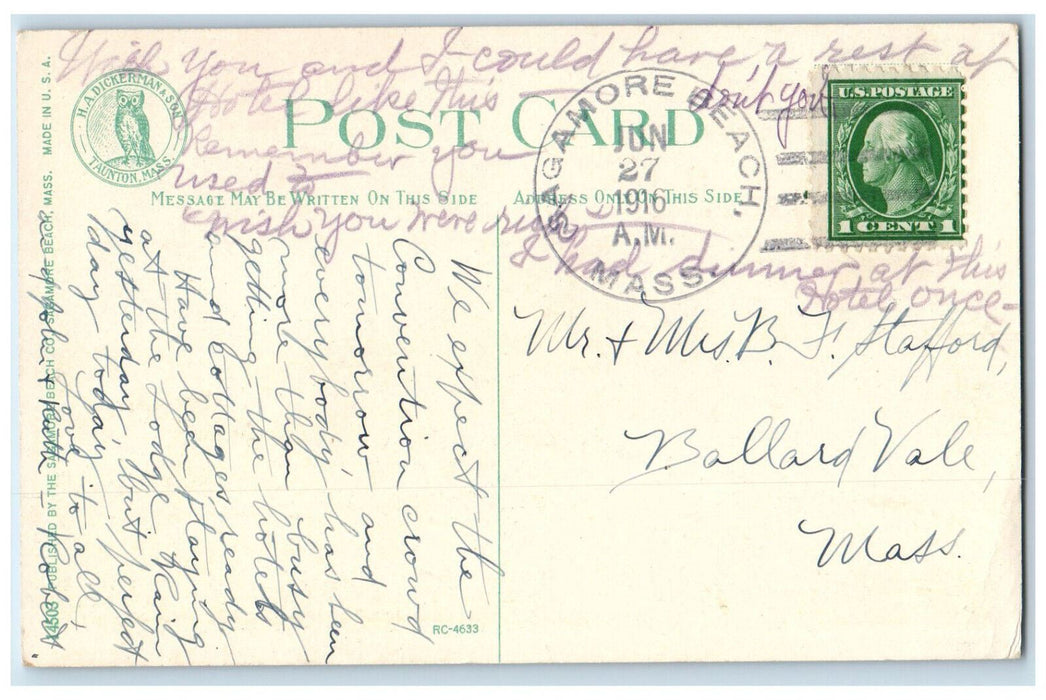 Wish you and I could have a rest at
Hotel like this — don't you
Remember you
used to
wish you were rich
I had dinner at this
Hotel once —
H. A. DICKERMAN & SON
TAUNTON, MASS.
POST CARD
MESSAGE MAY BE WRITTEN ON THIS SIDE
ADDRESS ONLY ON THIS SIDE
SAGAMORE BEACH,
JUN
27
1916
A.M.
MASS.
U.S. POSTAGE
1 CENT 1
We expect the
Convention crowd
tomorrow and
everybody has been
more than busy
getting the hotels
and cottages ready
Have been staying
at the Lodge. Rain
yesterday but perfect
day today.
Love to all,
Ruth - Robert
Mr. + Mrs. B. F. Stafford,
Ballard Vale,
Mass.
A-4503 PUBLISHED BY THE SAGAMORE BEACH CO., SAGAMORE BEACH, MASS. MADE IN U. S. A.
RC-4633